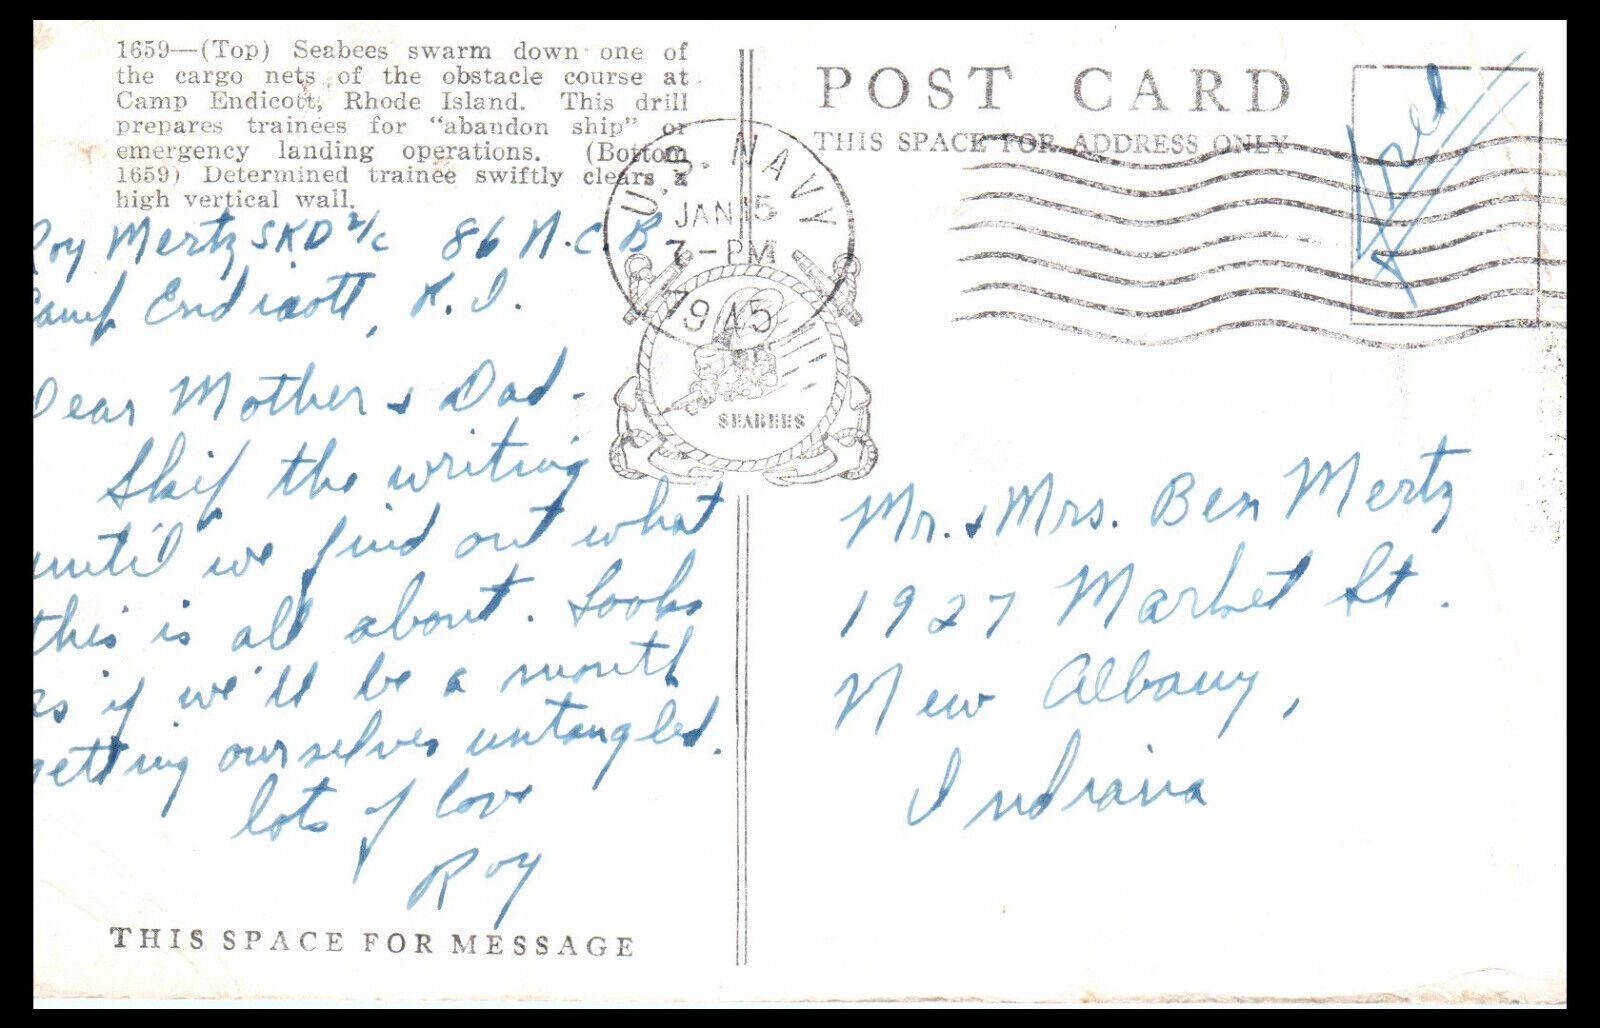 1659—(Top) Seabees swarm down one of
the cargo nets of the obstacle course at
Camp Endicott, Rhode Island. This drill
prepares trainees for "abandon ship" or
emergency landing operations. (Bottom
1659) Determined trainee swiftly clears a
high vertical wall.
Roy Mertz SKD 2/c 86 N.C.B.
Camp Endicott, R.I.
Dear Mother & Dad-
Skip the writing
until we find out what
this is all about. Looks
as if we'll be a month
getting ourselves untangled.
lots of love
Roy
THIS SPACE FOR MESSAGE
U.S. NAVY
JAN 15
7-PM
1945
SEABEES
POST CARD
THIS SPACE FOR ADDRESS ONLY
Free
Mr. & Mrs. Ben Mertz
1927 Market St.
New Albany,
Indiana